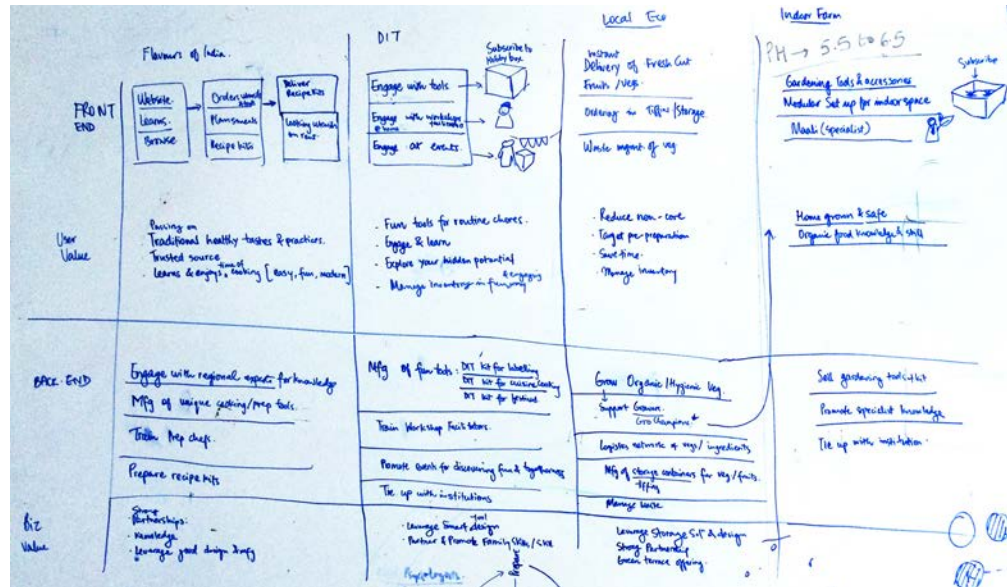 Local Eco
Indoor Farm
Flavours of India
DIT
Subscribe to
Hobby box
PH → 5.5 to 6.5
Subscribe
FRONT
END
Website
Learns
Browse
Recipe kits
Deliver
Recipe Kits
Engage with tools
Engage with workshops
@ home
Engage at events.
Instant
Delivery of Fresh Cut
Fruits / Veg.
Ordering in Tiffins / Storage
Waste mgmt of veg
Gardening Tools & accessories
Modular Set up for indoor space
Maali (specialist)
User
Value
Passing on
· Traditional healthy tastes & practices.
· Trusted source
· Learns & enjoys time of cooking [easy, fun, modern]
· Fun tools for routine chores.
· Engage & learn
· Explore your hidden potential
· Manage inventory in fun way
& engaging
· Reduce non-core
· Target pre-preparation
· Save time.
· Manage inventory
Home grown & safe
Organic food knowledge & skill
BACK-END
Engage with regional experts for knowledge
Mfg of unique cooking/prep tools.
Train Prep chefs
Prepare recipe kits
Mfg of fun tools: DIT kit for labelling
DIT kit for cuisine cooking
DIT kit for festival
Train Workshop Facilitators
Promote events for discovering fun & togetherness
Tie up with institutions
Grow Organic/Hygienic Veg.
Support Growers
Gro Champions*
Logistics network of vegs/ingredients
Mfg of storage containers for veg/fruits
tiffins
Manage waste
Sell gardening tools + kit
Promote specialist knowledge
Tie up with institution.
Biz
Value
Strong
Partnerships.
· Knowledge
· Leverage good design & mfg
· Leverage Smart tool design
· Partner & Promote Family
Leverage Storage Sol & design
Strong Partnership
Green terrace offering